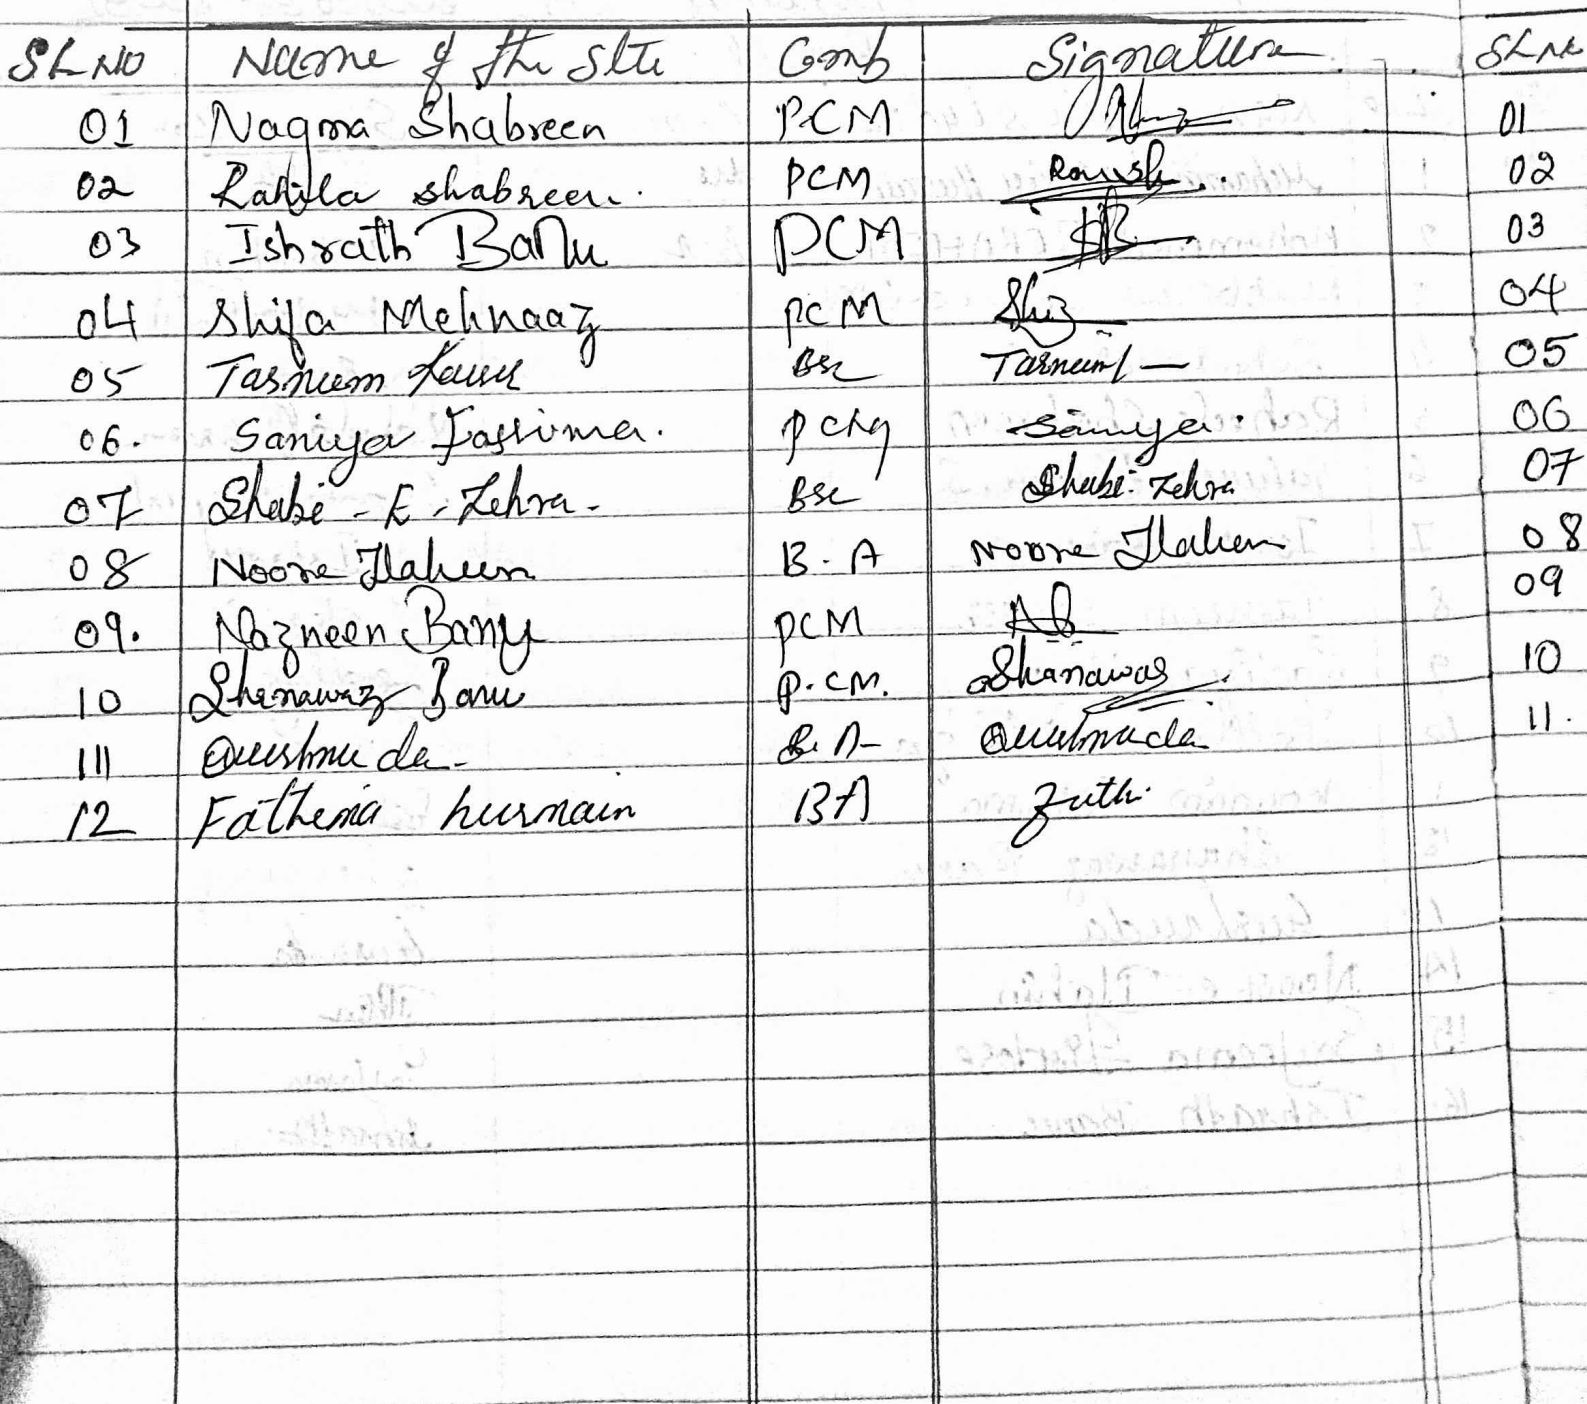 SL NO Name of the Stu Comb Signature SL No
01 Nagma Shabreen PCM 01
02 Rahila shabreen. PCM 02
03 Ishrath Banu PCM 03
04 Shifa Mehnaaz PCM 04
05 Tasneem Bsc Tasneem 05
06. Saniya PCM Saniya. 06
07 Shabe - E - Zehra - Bsc Shabe Zehra 07
08 Noore Ilaheen B. A Noore Ilaheen 08
09. Nazneen Banu PCM 09
10 Shanawaz Banu P.CM. Shanawas 10
111 B.A 11.
12 Fathema husnain BA